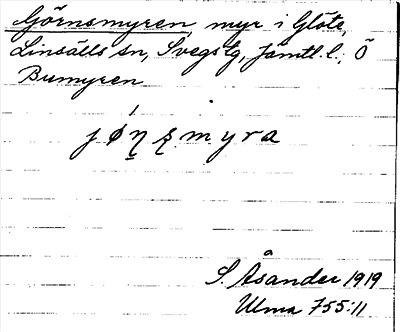 Görnsmyren, myr i Glöte,
Linsälls sn, Svegs tg, Jämtl. l., Ö
Bumyren
jǿṇṣmyra
S. Åsander 1919
Ulma 755:11